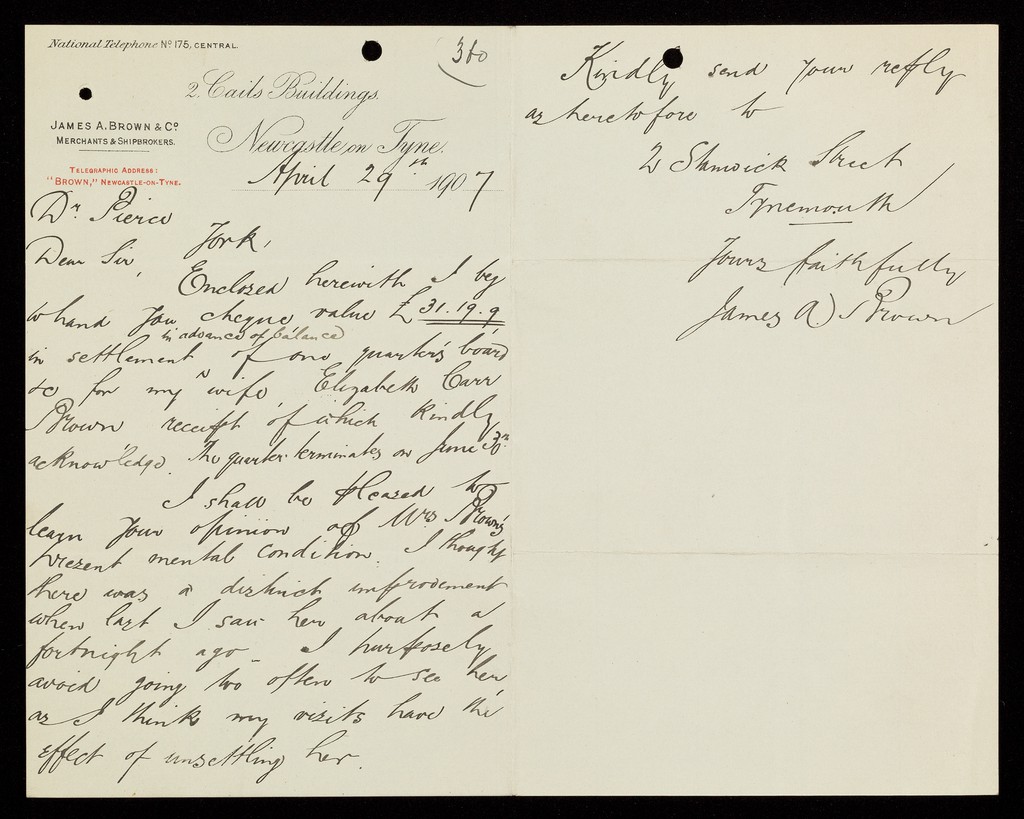 National Telephone No 175, CENTRAL.
360
2. Cail's Buildings.
JAMES A. BROWN & Co
MERCHANTS & SHIPBROKERS.
Newcastle on Tyne.
TELEGRAPHIC ADDRESS:
"BROWN," NEWCASTLE-ON-TYNE.
April 29th 1907
Dr Pierce
York,
Dear Sir,
Enclosed herewith I beg
to hand you cheque value £31.19.9
in advance of balance
in settlement of one quarter's board
&c for my wife, Elizabeth Carr
Brown receipt of which kindly
acknowledge. The quarter terminates on June 30th
I shall be pleased to
learn your opinion of Mrs Brown's
present mental condition. I thought
there was a distinct improvement
when last I saw her about a
fortnight ago - I purposely
avoid going too often to see her
as I think my visits have the
effect of unsettling her.
Kindly send your reply
as heretofore to
2 Stanwick Street
Tynemouth
Yours faithfully
James A. Brown